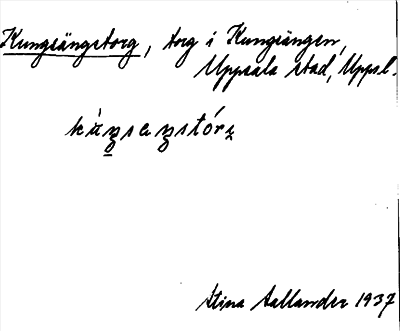 Kungsängstorg, torg i Kungsängen,
Uppsala stad, Uppsl.
kùŋsaŋstórj
Stina Hallander 1937